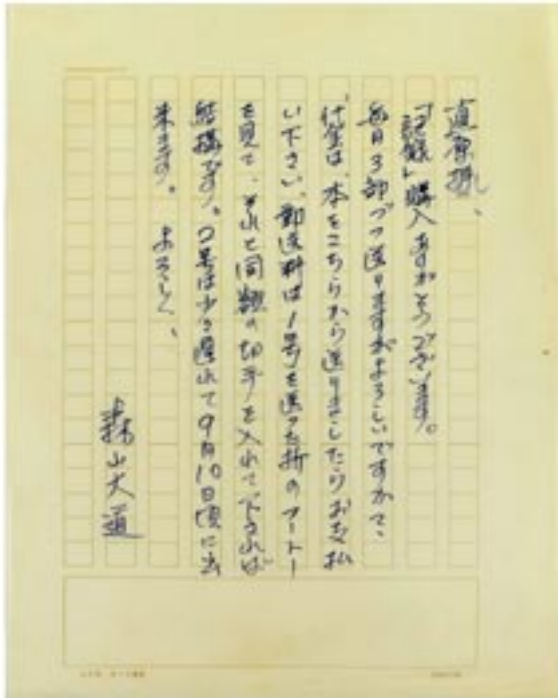 「記録」購入ありがとうございます。
毎月3部づつ送りますがよろしいですか?
代金は、本をこちらから送りましたらお支払
い下さい、郵送料は1号を送った折の
を見て、それと同額の切手を入れて下されば
結構です。2号は少々遅れて9月10日頃に出
来ます。よろしく、
森山大道